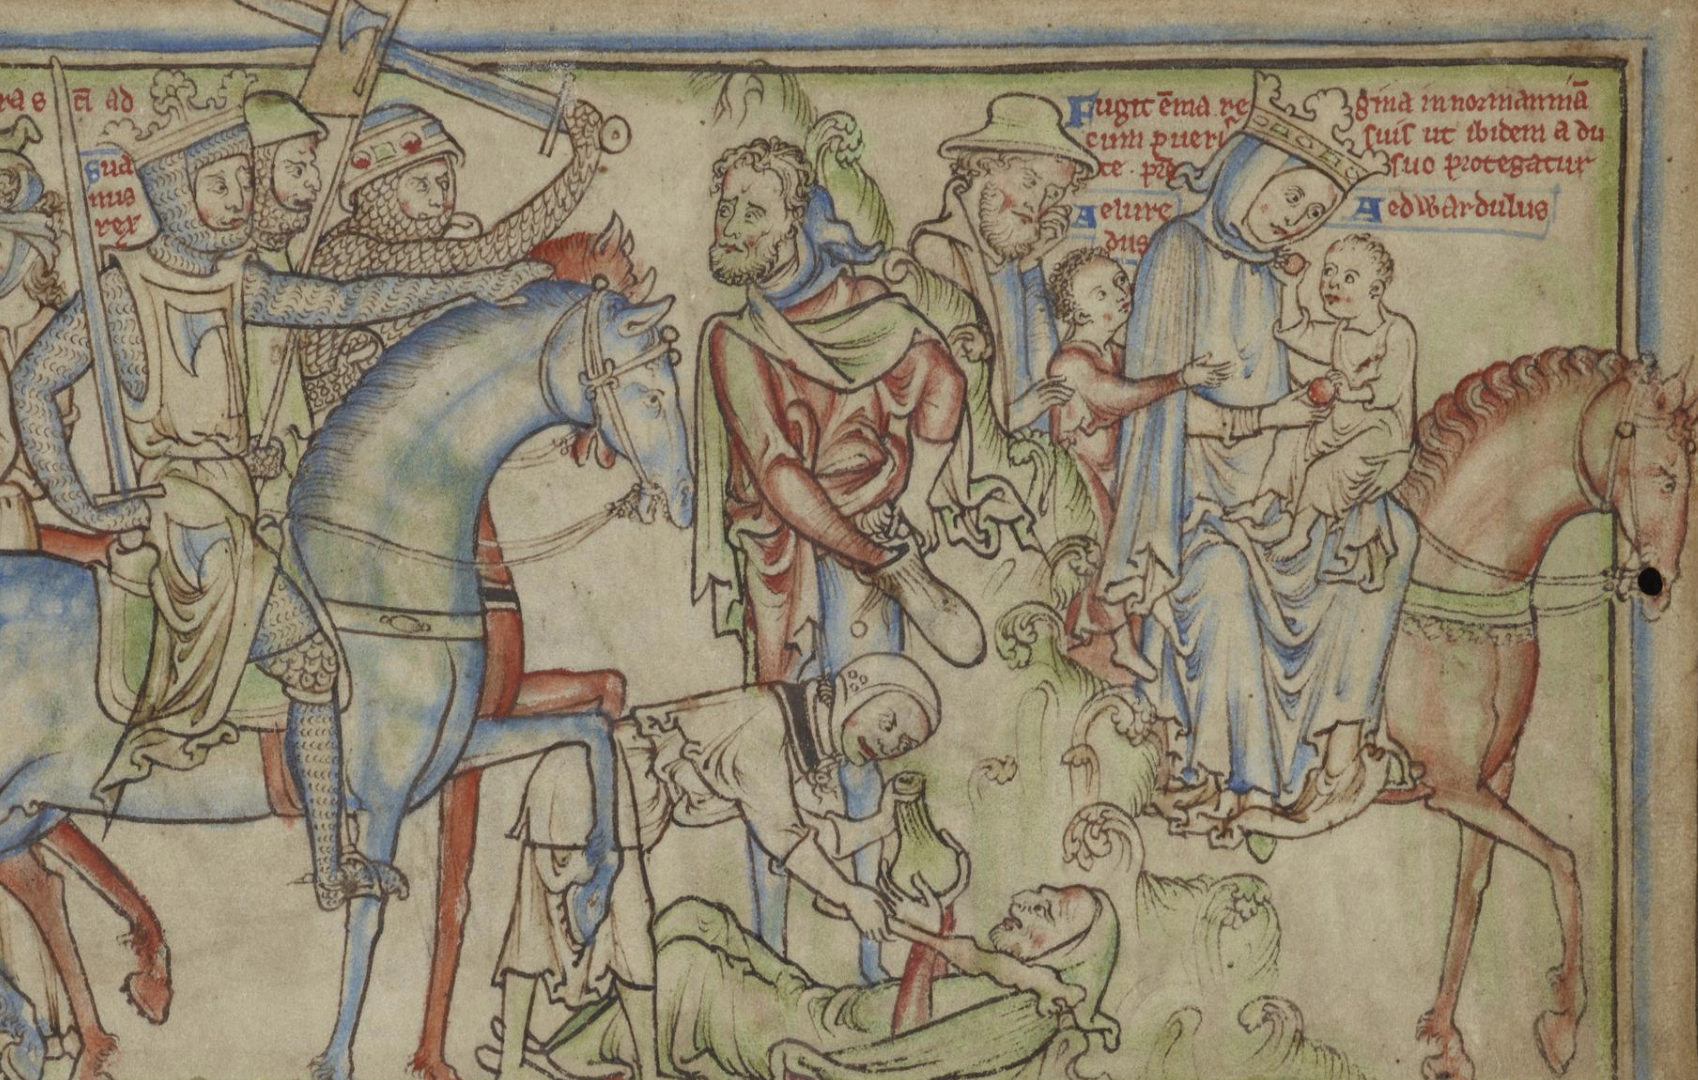 ras cā ad
Sua
nus
rex
Fugit ēma regina in normanniā
cum pueris suis ut ibidem a du
ce · pr̄e suo protegatur
Aelure
dus
Aedwardulus